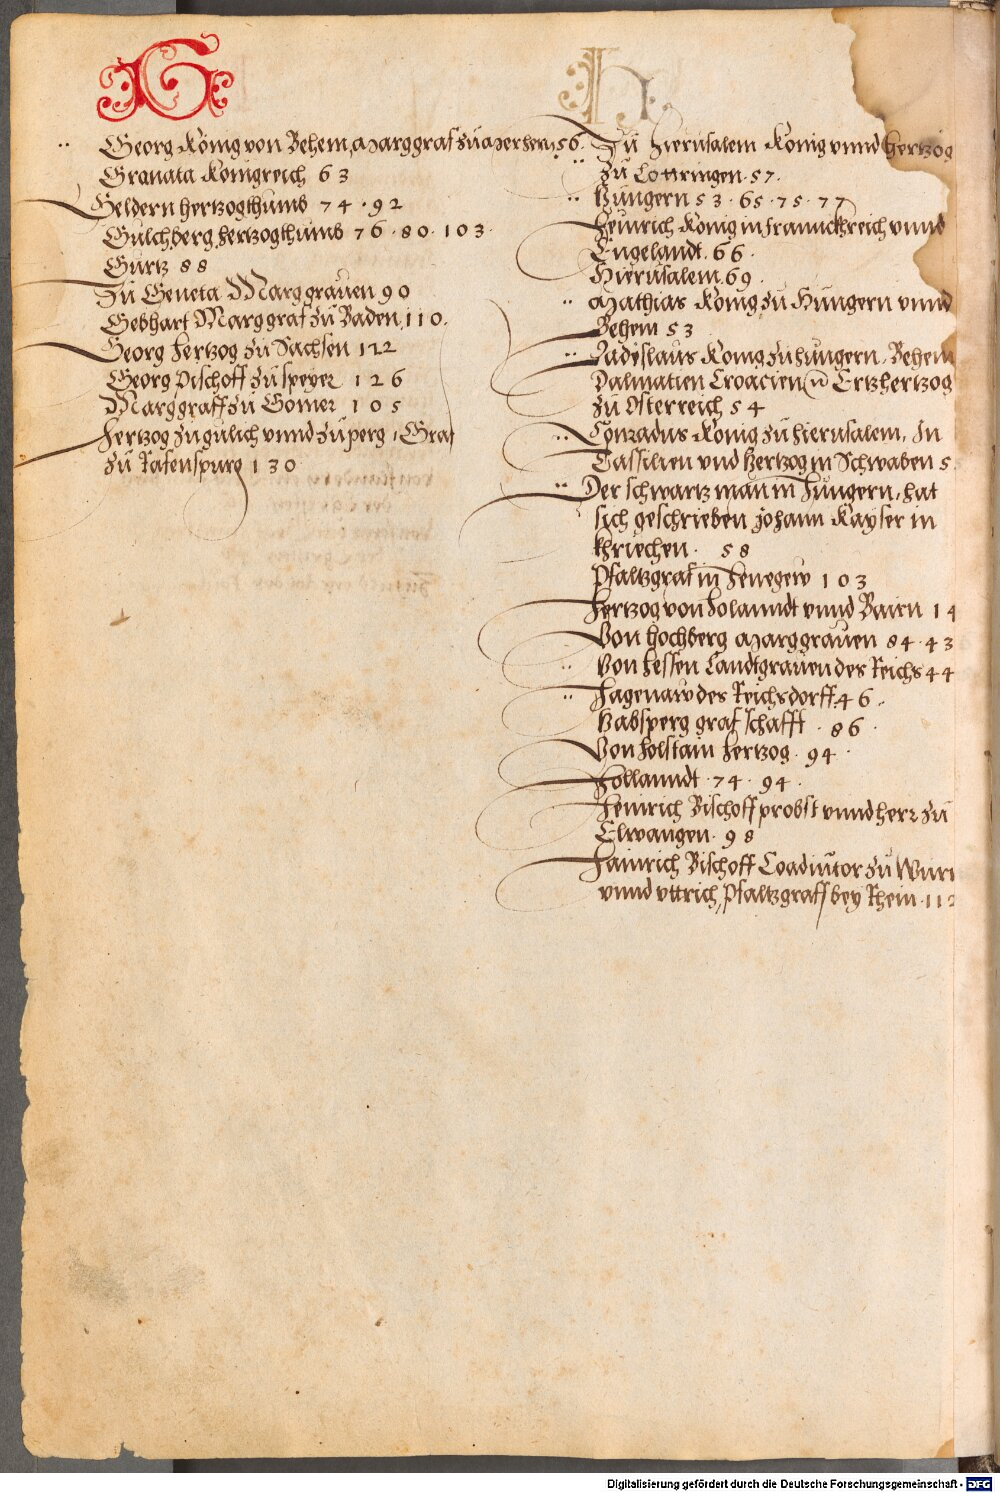 G
Georg König von Behem, Marggraf zu Merhern 56
Granata Königreich 63
Geldern hertzogthumb 74 · 92
Gulchberg hertzogthumb 76 · 80 · 103 ·
Gürtz 88
Zu Geneta Marggrauen 90
Gebhart Marggraf zu Baden 110.
Georg hertzog zu Sachsen 122
Georg Bischoff zu speyer 126
Marggraff zu Gomer 105
Hertzog zu gülich vnnd zu perg, Graf
zu Rafenspurg 130
H
Zu Hierusalem König vnnd hertzog
zu Lottringen · 57 ·
Hungern 53 · 65 · 75 · 77
Heinrich König in franckhreich vnnd
Engelandt · 66 ·
Hierusalem 69 ·
Mathias König zu Hungern vnnd
Behem 53
Ladislaus König zu hungern, Behem
Dalmatien Croacien Ertzhertzog
zu Osterreich 54
Conradus König zu hierusalem, In
Cassilien vnd hertzog in Schwaben 5
Der schwartz man in Hungern, hat
sich geschrieben Johann Kayser in
khriechen · 58
Pfaltzgraf in Henegew 103
Hertzog von holanndt vnnd Bairn 14
Von hochberg Marggrauen 84 · 43
Von hessen Landtgrauen des Reichs 44
Hagenaw des Reichsdorff 46 ·
Habsperg graf schafft · 86 ·
Von holstain hertzog · 94 ·
Hollanndt · 74 · 94 ·
Heinrich Bischoff probst vnnd herr zu
Elwangen · 98
Hainrich Bischoff Coadiutor zu Wurm
vnnd vttrich, Pfaltzgraff bey Rhein · 112
Digitalisierung gefördert durch die Deutsche Forschungsgemeinschaft - DFG